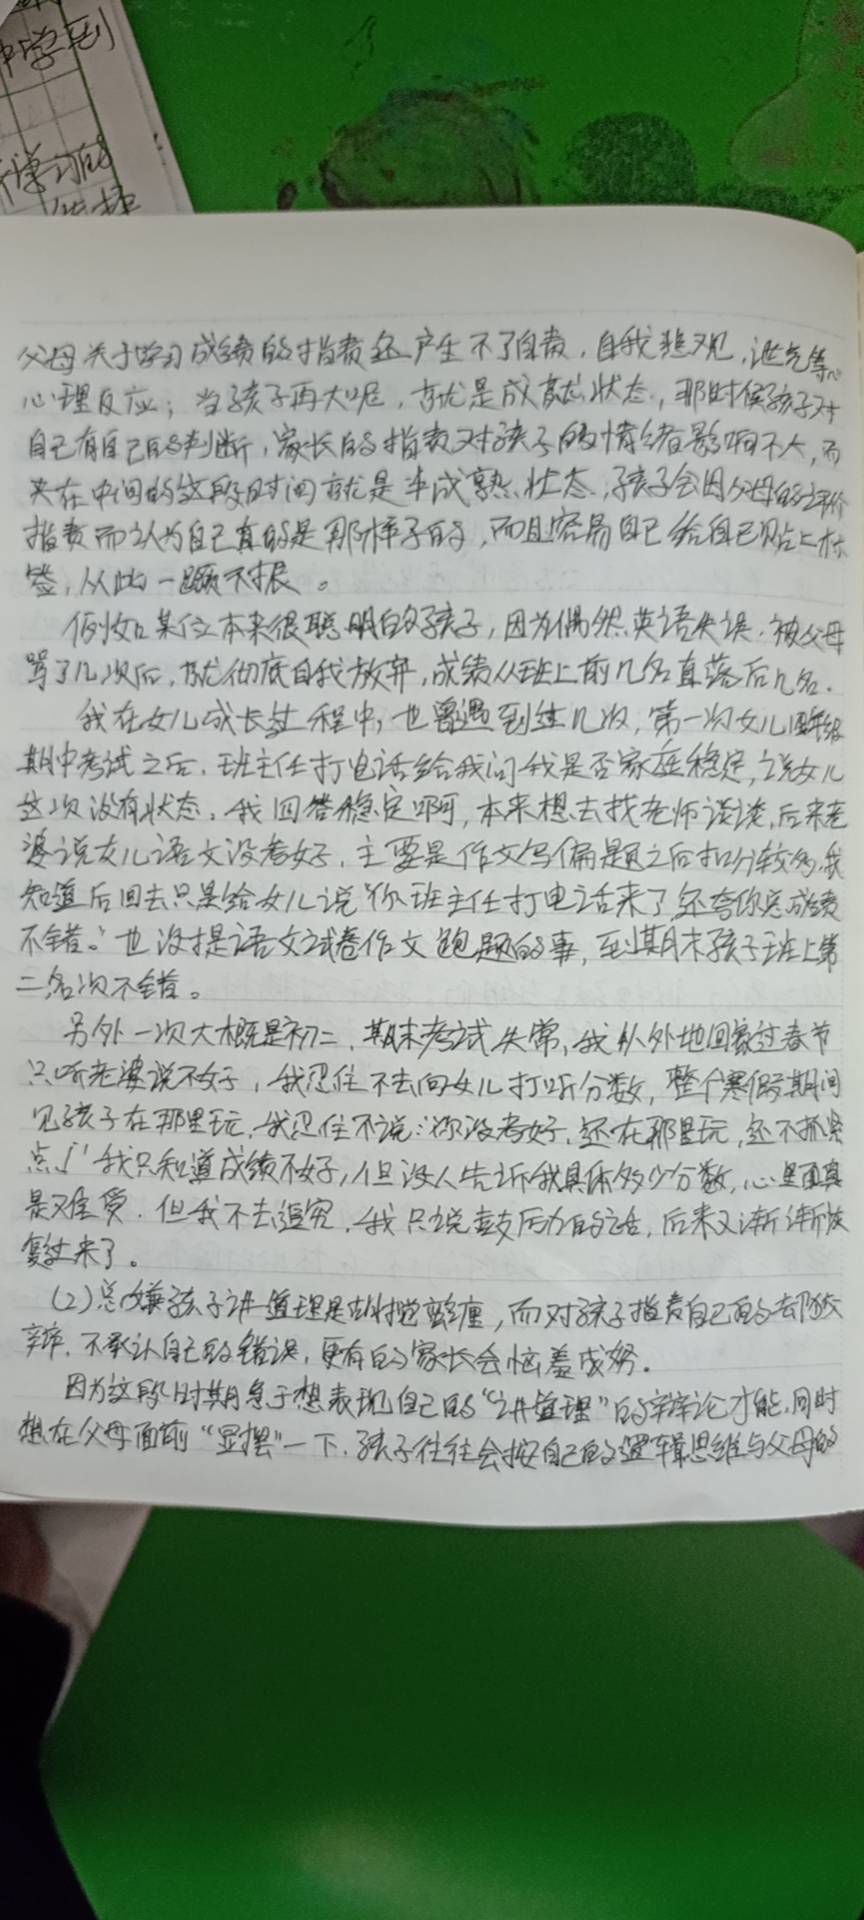 中学到
学习的
父母关于学习成绩的指责还产生不了自责，自我悲观，泄气等
心理反应；当孩子再大呢，就是成熟状态，那时候孩子对
自己有自己的判断，家长的指责对孩子的情绪影响不大，而
夹在中间的这段时间就是半成熟状态，孩子会因父母的评价
指责而认为自己真的是那样子的，而且容易自己给自己贴上标
签，从此一蹶不振。
例如某位本来很聪明的孩子，因为偶然英语失误，被父母
骂了几次后，就彻底自我放弃，成绩从班上前几名直落后几名．
我在女儿成长过程中，也曾遇到过几次，第一次女儿四年级
期中考试之后，班主任打电话给我问我是否家庭稳定，说女儿
这次没有状态，我回答稳定啊，本来想去找老师谈谈，后来老
婆说女儿语文没考好，主要是作文写偏题之后扣分较多，我
知道后回去只是给女儿说“你班主任打电话来了还夸你总成绩
不错。”也没提语文试卷作文跑题的事，到期末孩子班上第
二名次不错。
另外一次大概是初二，期末考试失常，我从外地回家过春节
只听老婆说不好，我忍住不去向女儿打听分数，整个寒假期间
见孩子在那里玩，我忍住不说：“你没考好，还在那里玩，还不抓紧
点！”我只知道成绩不好，但没人告诉我具体多少分数，心里面真
是难受．但我不去追究，我只说鼓励的话，后来又渐渐恢
复过来了。
（2）总嫌孩子讲道理是胡搅蛮缠，而对孩子指责自己的却狡
辩．不承认自己的错误，更有的家长会恼羞成努。
因为这段时期急于想表现自己的“讲道理”的辩论才能，同时
想在父母面前“显摆”一下．孩子往往会按自己的逻辑思维与父母的